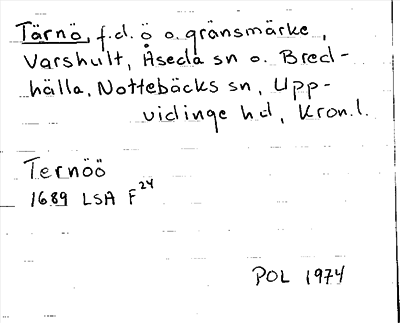 Tärnö, f.d. ö o. gränsmärke,
Varshult, Åseda sn o. Bred-
hälla, Nottebäcks sn, Upp-
vidinge hd, Kron.l.
Ternöö
1689 LSA F24
POL 1974